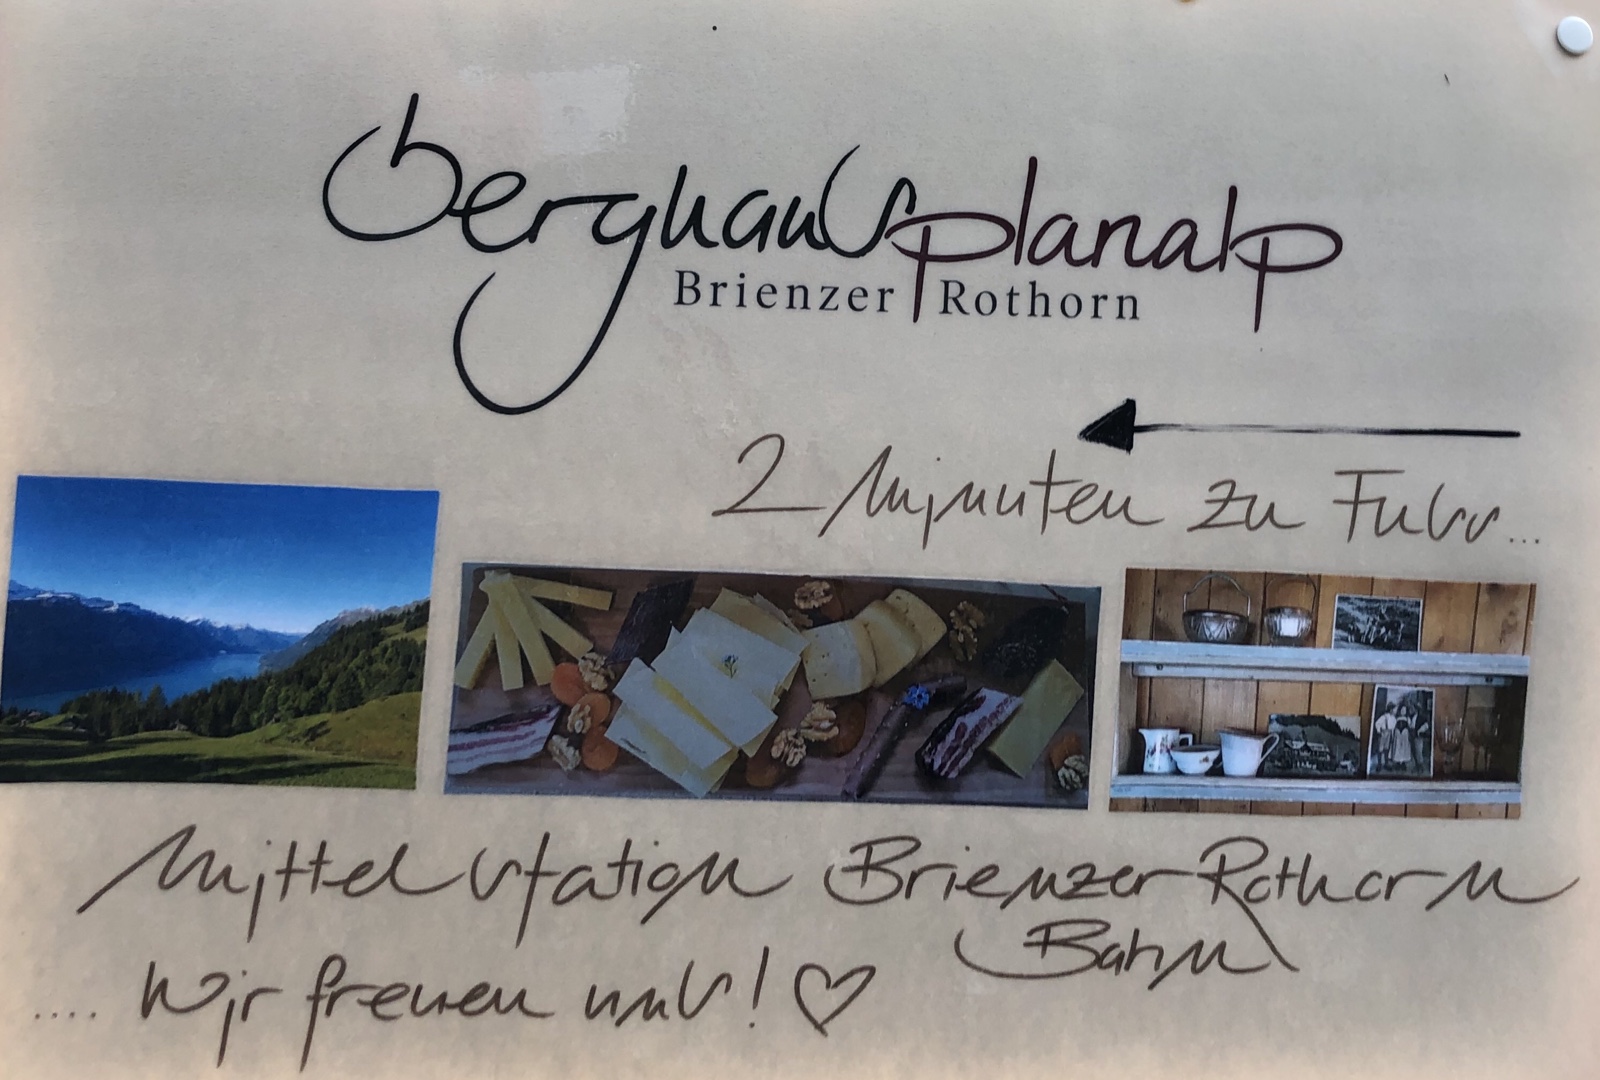 berghaus planalp
Brienzer Rothorn
2 Minuten zu Fuss...
Mittelstation Brienzer Rothorn
Bahn
.... Wir freuen uns! ♡